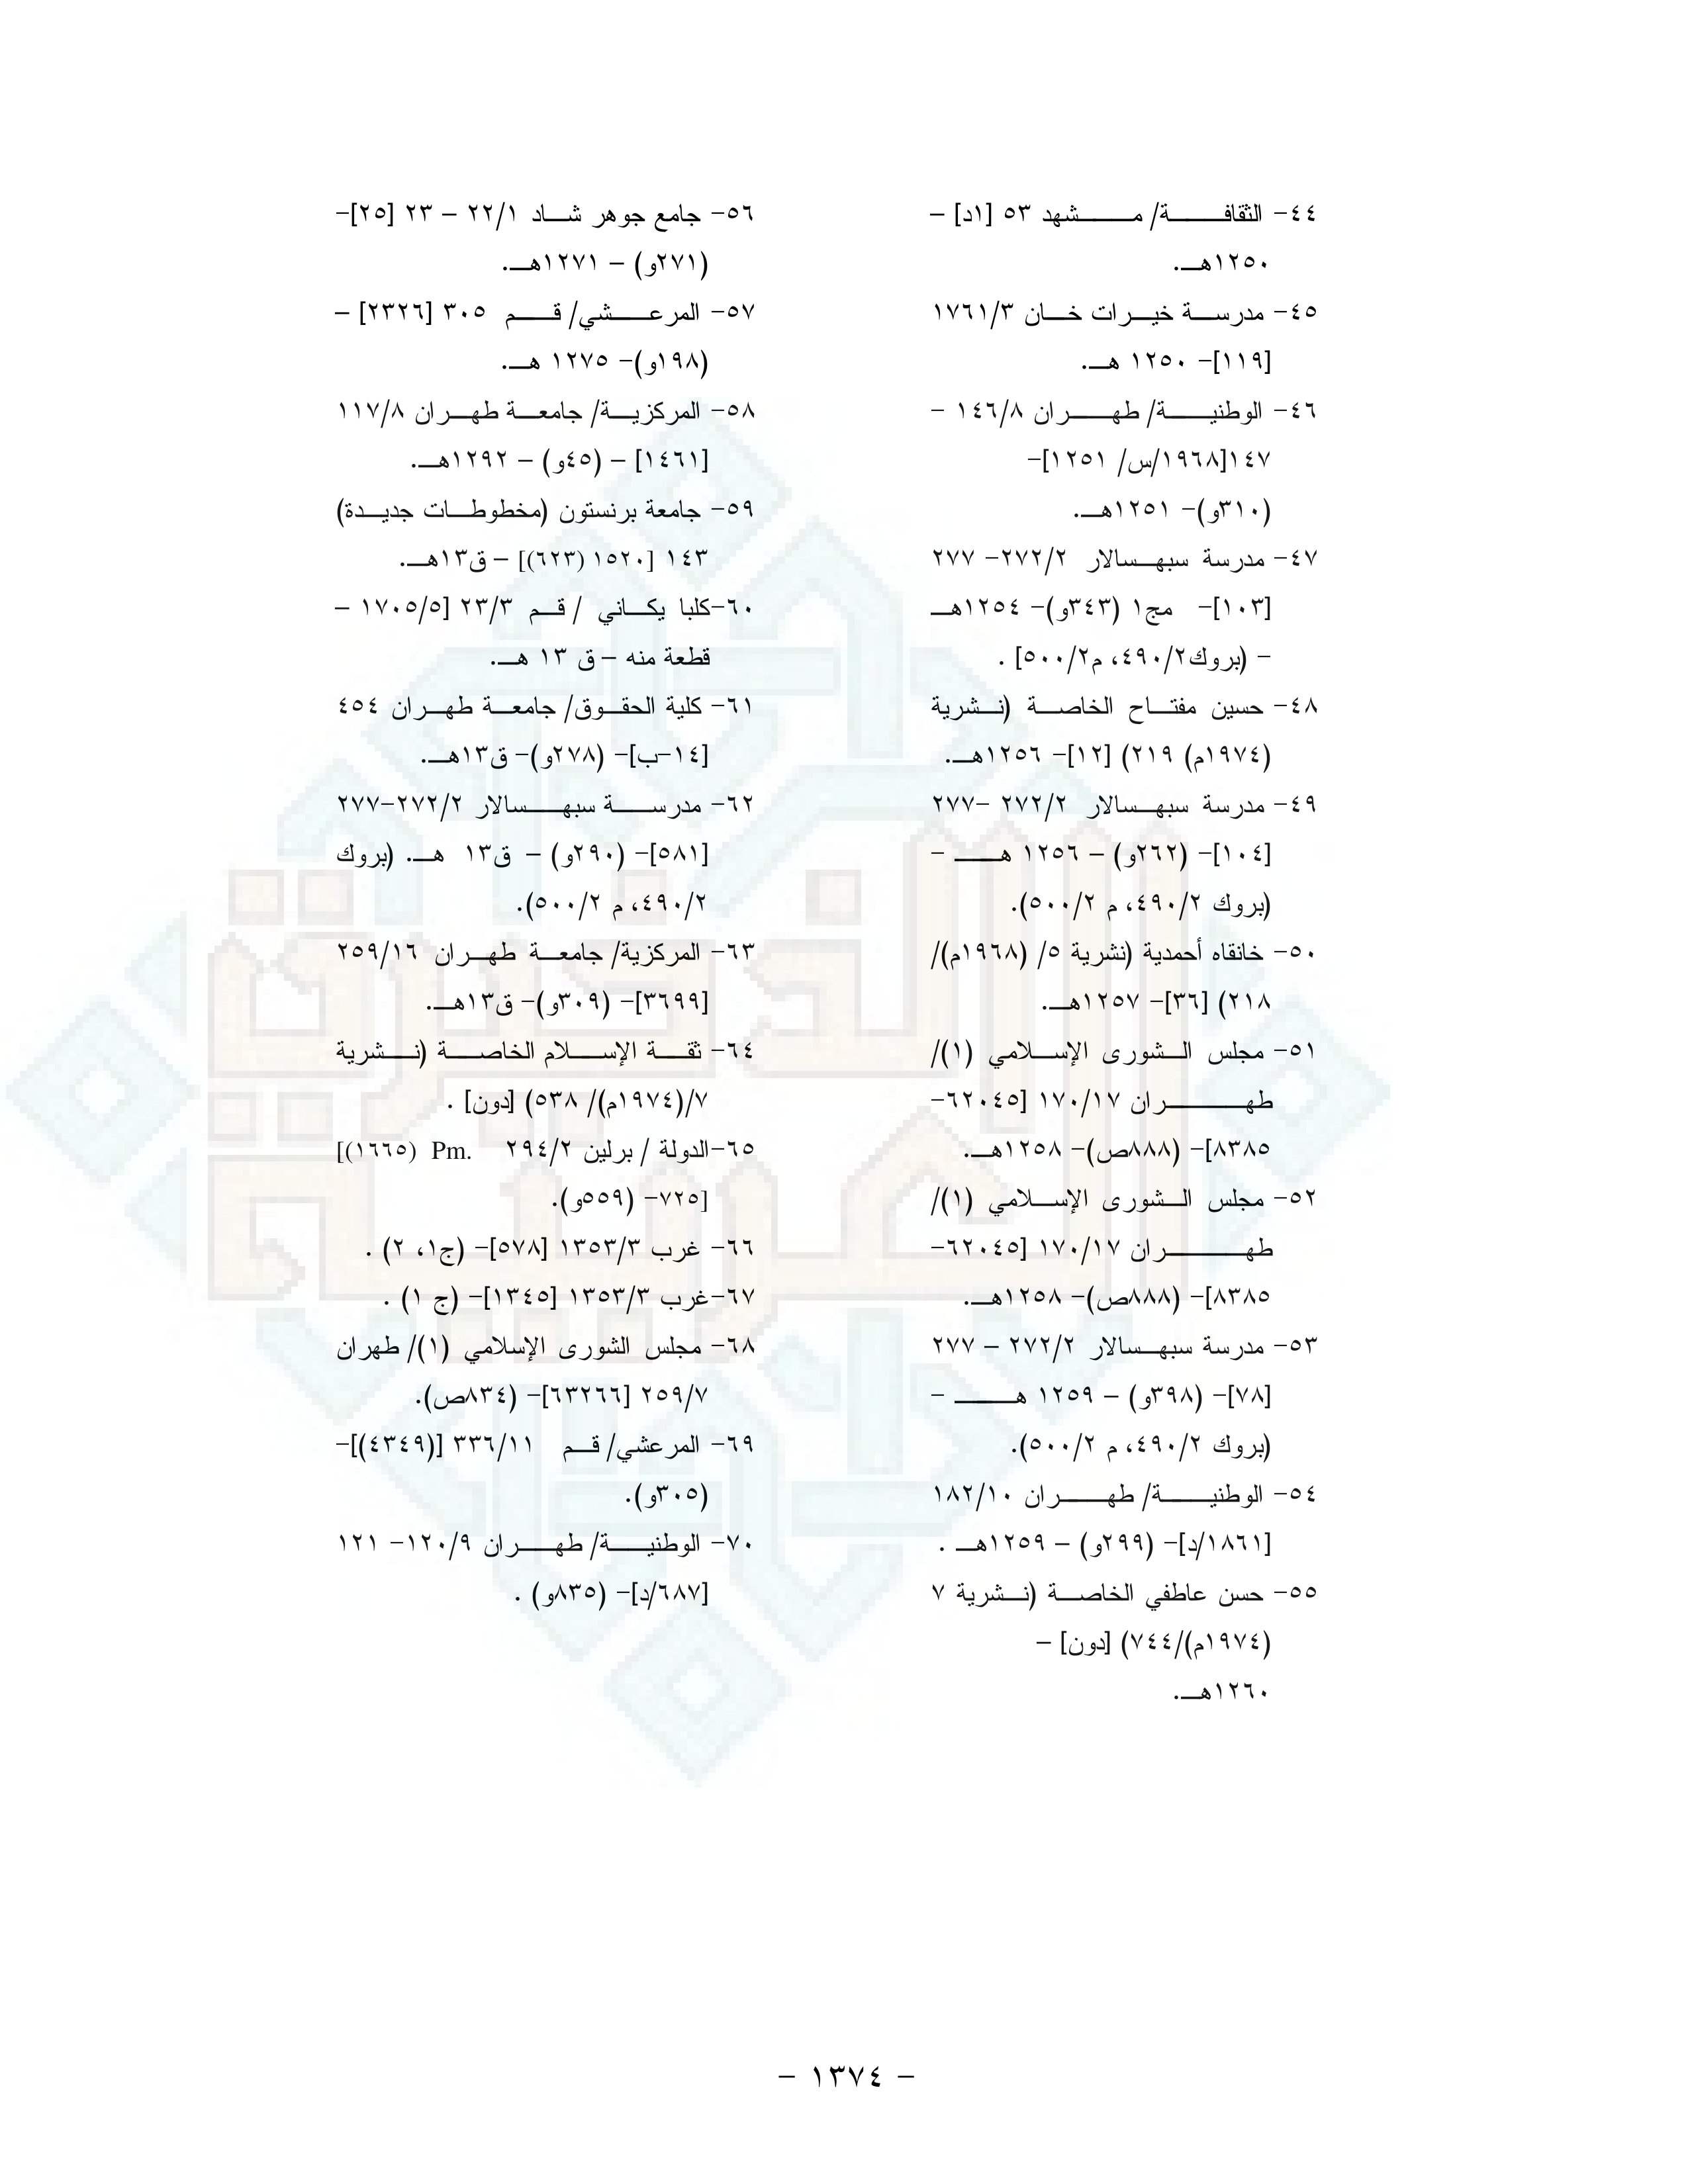 ٤٤- الثقافة/ مشهد ٥٣ [١د] –
١٢٥٠هـ.
٤٥- مدرسة خيرات خان ١٧٦١/٣
[١١٩]- ١٢٥٠ هـ.
٤٦- الوطنية/ طهران ١٤٦/٨ -
١٤٧[١٩٦٨/س/ ١٢٥١]-
(٣١٠و)- ١٢٥١هـ.
٤٧- مدرسة سبهسالار ٢٧٢/٢- ٢٧٧
[١٠٣]- مج١ (٣٤٣و)- ١٢٥٤هـ
- (بروك٤٩٠/٢، م٥٠٠/٢] .
٤٨- حسين مفتاح الخاصة (نشرية
(١٩٧٤م) ٢١٩) [١٢]- ١٢٥٦هـ.
٤٩- مدرسة سبهسالار ٢٧٢/٢ -٢٧٧
[١٠٤]- (٢٦٢و) – ١٢٥٦ هـ -
(بروك ٤٩٠/٢، م ٥٠٠/٢).
٥٠- خانقاه أحمدية (نشرية ٥/ (١٩٦٨م)/
٢١٨) [٣٦]- ١٢٥٧هـ.
٥١- مجلس الشورى الإسلامي (١)/
طهران ١٧٠/١٧ [٦٢٠٤٥-
٨٣٨٥]- (٨٨٨ص)- ١٢٥٨هـ.
٥٢- مجلس الشورى الإسلامي (١)/
طهران ١٧٠/١٧ [٦٢٠٤٥-
٨٣٨٥]- (٨٨٨ص)- ١٢٥٨هـ.
٥٣- مدرسة سبهسالار ٢٧٢/٢ – ٢٧٧
[٧٨]- (٣٩٨و) – ١٢٥٩ هـ -
(بروك ٤٩٠/٢، م ٥٠٠/٢).
٥٤- الوطنية/ طهران ١٨٢/١٠
[١٨٦١/د]- (٢٩٩و) – ١٢٥٩هـ .
٥٥- حسن عاطفي الخاصة (نشرية ٧
(١٩٧٤م)/٧٤٤) [دون] –
١٢٦٠هـ.
٥٦- جامع جوهر شاد ٢٢/١ – ٢٣ [٢٥]-
(٢٧١و) – ١٢٧١هـ.
٥٧- المرعشي/ قم ٣٠٥ [٢٣٢٦] –
(١٩٨و)- ١٢٧٥ هـ.
٥٨- المركزية/ جامعة طهران ١١٧/٨
[١٤٦١] – (٤٥و) – ١٢٩٢هـ.
٥٩- جامعة برنستون (مخطوطات جديدة)
١٤٣ [١٥٢٠ (٦٢٣)] – ق١٣هـ.
٦٠-كلبا يكاني / قم ٢٣/٣ [١٧٠٥/٥ –
قطعة منه – ق ١٣ هـ.
٦١- كلية الحقوق/ جامعة طهران ٤٥٤
[١٤-ب]- (٢٧٨و)- ق١٣هـ.
٦٢- مدرسة سبهسالار ٢٧٢/٢-٢٧٧
[٥٨١]- (٢٩٠و) – ق١٣ هـ. (بروك
٤٩٠/٢، م ٥٠٠/٢).
٦٣- المركزية/ جامعة طهران ٢٥٩/١٦
[٣٦٩٩]- (٣٠٩و)- ق١٣هـ.
٦٤- ثقة الإسلام الخاصة (نشرية
٧/(١٩٧٤م)/ ٥٣٨) [دون] .
٦٥-الدولة / برلين ٢٩٤/٢ Pm. (١٦٦٥)]
[٧٢٥- (٥٥٩و).
٦٦- غرب ١٣٥٣/٣ [٥٧٨]- (ج١، ٢) .
٦٧-غرب ١٣٥٣/٣ [١٣٤٥]- (ج ١) .
٦٨- مجلس الشورى الإسلامي (١)/ طهران
٢٥٩/٧ [٦٣٢٦٦]- (٨٣٤ص).
٦٩- المرعشي/ قم ٣٣٦/١١ [(٤٣٤٩)]-
(٣٠٥و).
٧٠- الوطنية/ طهران ١٢٠/٩- ١٢١
[٦٨٧/د]- (٨٣٥و) .
- ١٣٧٤ -